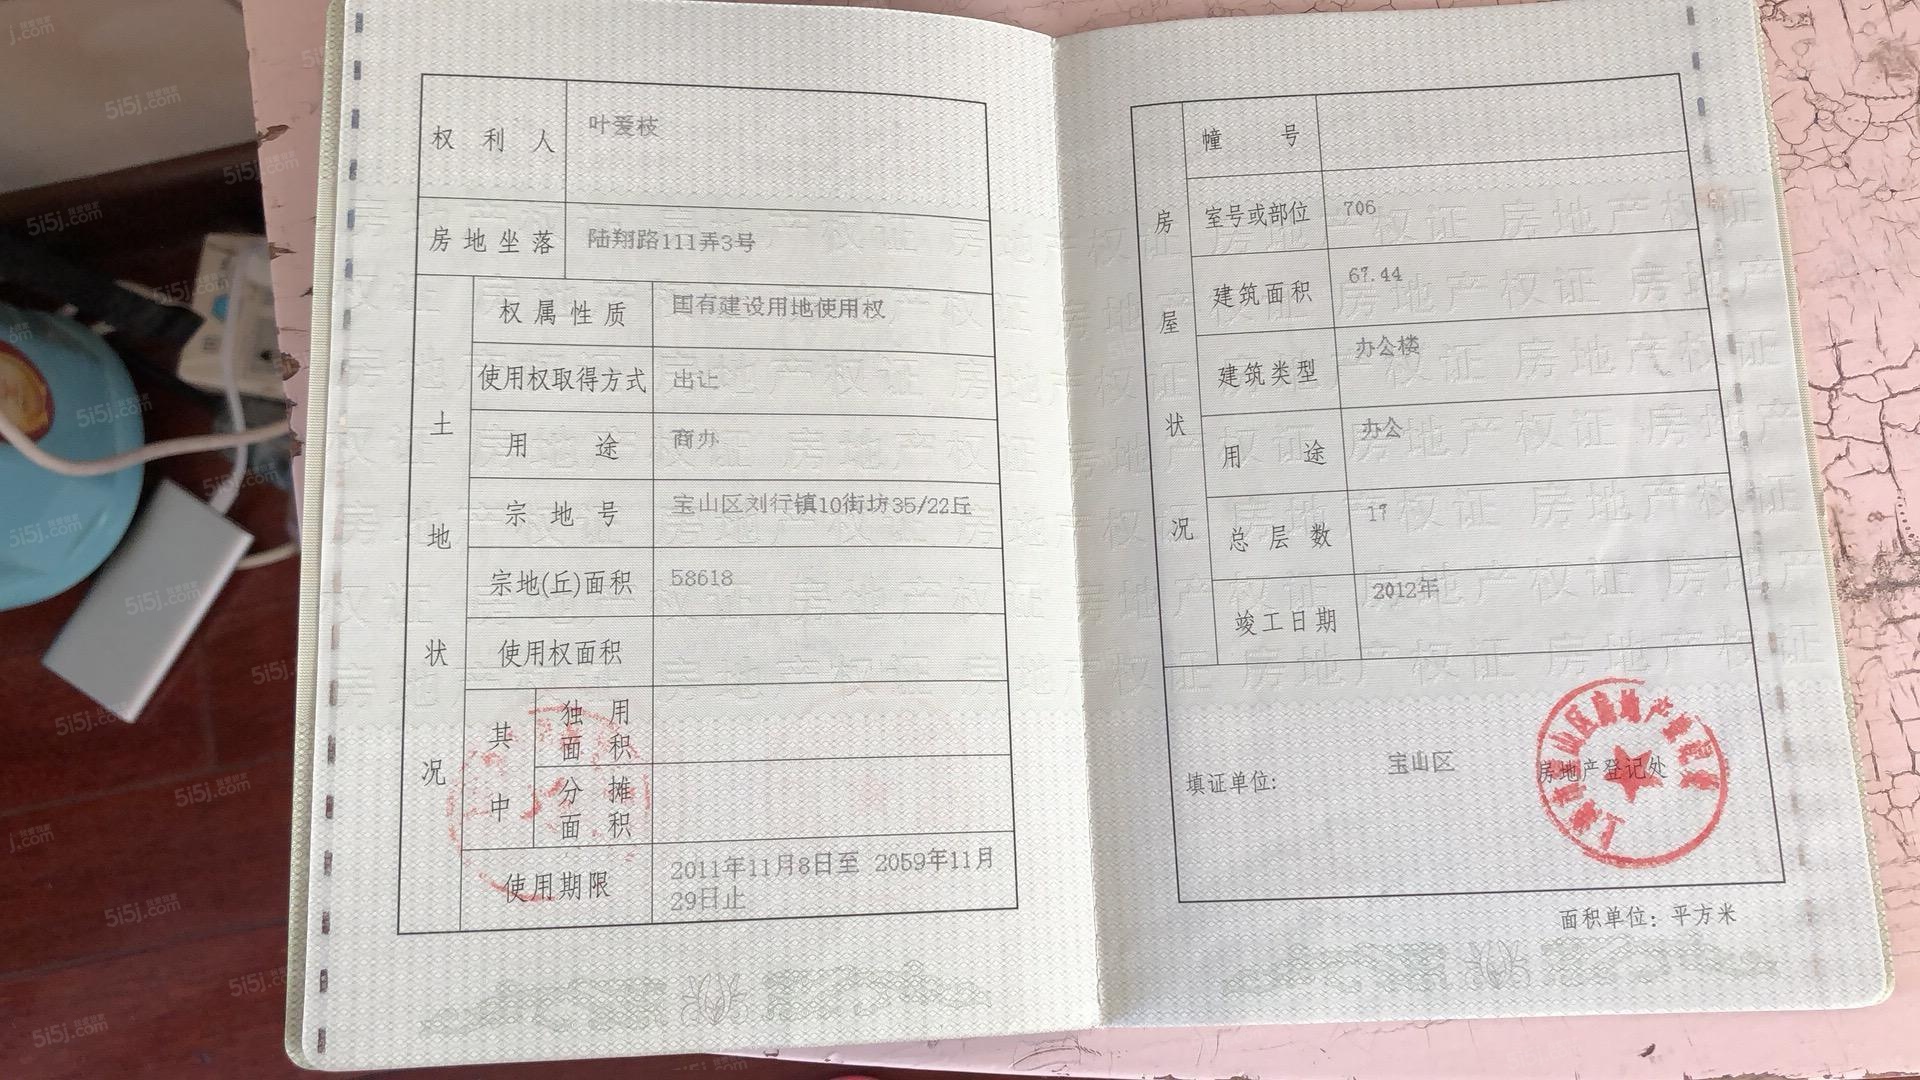 权利人 叶爱枝
房地坐落 陆翔路111弄3号
土地状况
权属性质 国有建设用地使用权
使用权取得方式 出让
用途 商办
宗地号 宝山区刘行镇10街坊35/22丘
宗地(丘)面积 58618
使用权面积
其中
独用面积
分摊面积
使用期限 2011年11月8日至 2059年11月
29日止
房屋状况
幢号
室号或部位 706
建筑面积 67.44
建筑类型 办公楼
用途 办公
总层数 17
竣工日期 2012年
填证单位: 宝山区 房地产登记处
面积单位: 平方米
房地产权证
5i5j.com